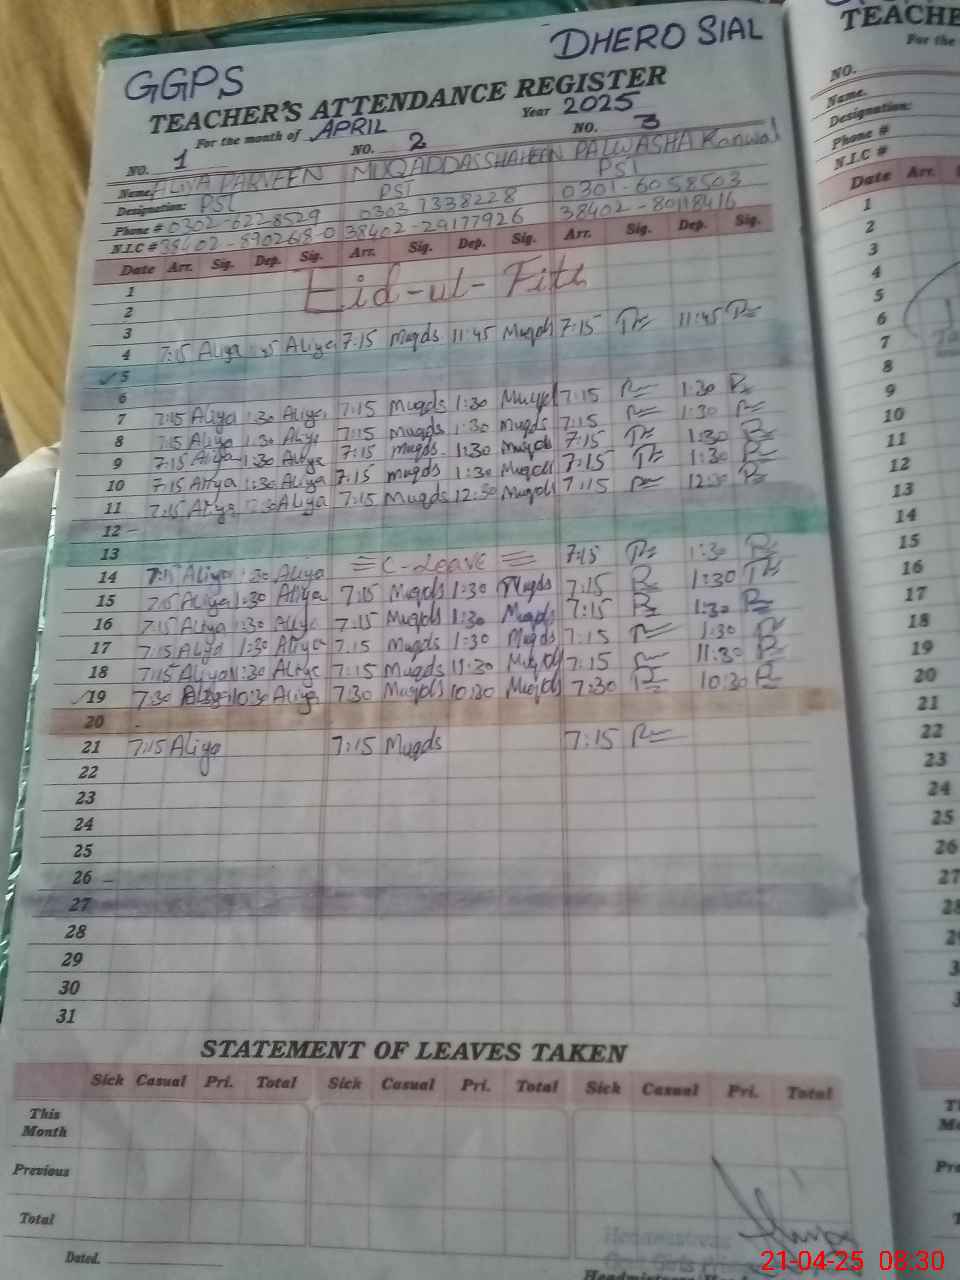 GGPS DHERO SIAL
TEACHER'S ATTENDANCE REGISTER
For the month of APRIL Year 2025
NO. 1 NO. 2 NO. 3
Name. ALIYA PARVEEN MUQADDAS SHAHEEN PALWASHA Kanwal
Designation: PST PST PST
Phone # 0302-6228529 0303 7338228 0301-6058503
N.I.C # 38402-8902618-0 38402-29177926 38402-80118416
Date Arr. Sig. Dep. Sig. Arr. Sig. Dep. Sig. Arr. Sig. Dep. Sig.
1 Eid-ul-Fitr
2
3
4 7:15 Aliya Aliya 7:15 Muqds 11:45 Muqds 7:15 11:45
5
6
7 7:15 Aliya 1:30 Aliya 7:15 Muqds 1:30 Muqds 7:15 1:30
8 7:15 Aliya 1:30 Aliya 7:15 Muqds 1:30 Muqds 7:15 1:30
9 7:15 Aliya 1:30 Aliya 7:15 Muqds 1:30 Muqds 7:15 1:30
10 7:15 Aliya 1:30 Aliya 7:15 Muqds 1:30 Muqds 7:15 1:30
11 7:15 Aliya 12:30 Aliya 7:15 Muqds 12:30 Muqds 7:15 12:30
12 -
13
14 7:15 Aliya 1:30 Aliya C-Leave 7:15 1:30
15 7:15 Aliya 1:30 Aliya 7:15 Muqds 1:30 Muqds 7:15 1:30
16 7:15 Aliya 1:30 Aliya 7:15 Muqds 1:30 Muqds 7:15 1:30
17 7:15 Aliya 1:30 Aliya 7:15 Muqds 1:30 Muqds 7:15 1:30
18 7:15 Aliya 11:30 Aliya 7:15 Muqds 11:30 Muqds 7:15 11:30
19 7:30 Aliya 10:30 Aliya 7:30 Muqds 10:30 Muqds 7:30 10:30
20
21 7:15 Aliya 7:15 Muqds 7:15
22
23
24
25
26 -
27
28
29
30
31
STATEMENT OF LEAVES TAKEN
Sick Casual Pri. Total Sick Casual Pri. Total Sick Casual Pri. Total
This Month
Previous
Total
Dated.
Headmistress
21-04-25 08:30
TEACHE
For the
NO.
Name.
Designation:
Phone #
N.I.C #
Date Arr.
1
2
3
4
5
6
7
8
9
10
11
12
13
14
15
16
17
18
19
20
21
22
23
24
25
26
27